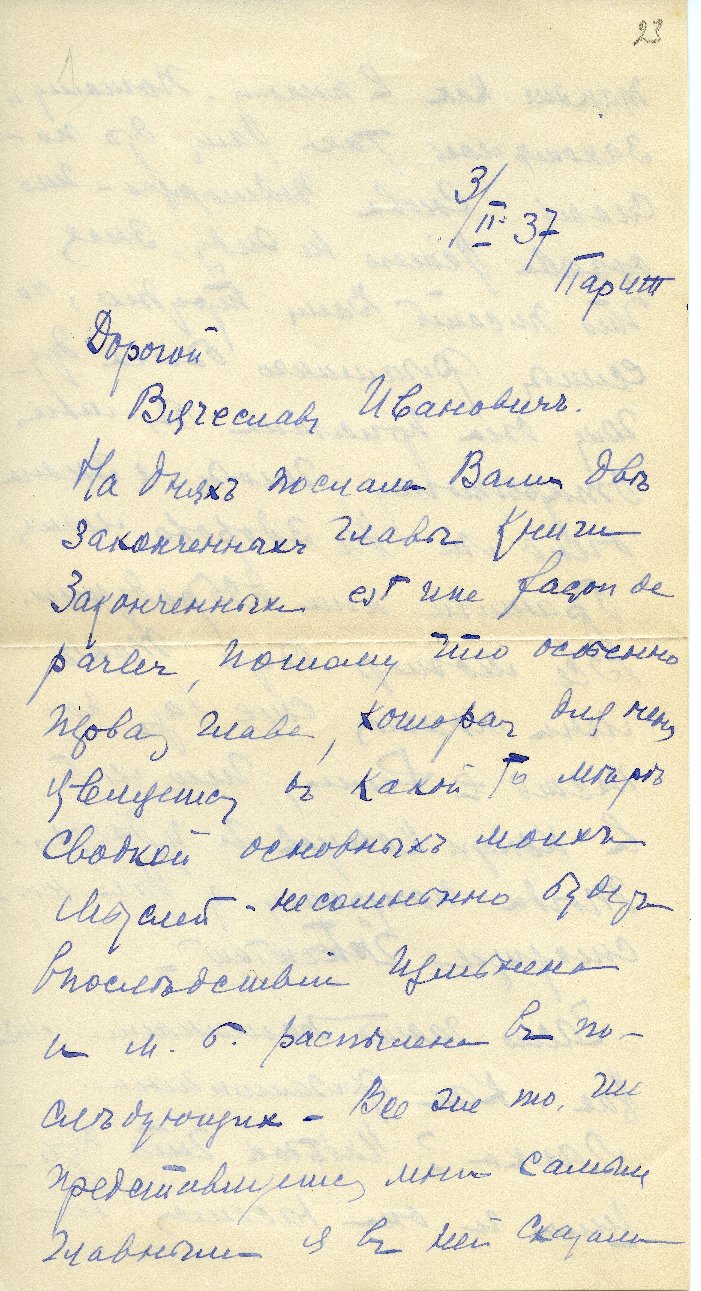 23
3/II 37
Париж
Дорогой
Вячеславъ Ивановичъ.
На дняхъ послала Вамъ двѣ
законченныхъ главы книги
Законченныхъ est une façon de
parler, потому что особенно
первая глава, которая для меня
является въ какой то мѣрѣ
сводкой основныхъ моихъ
мыслей - несомнѣнно будетъ
впослѣдствіи измѣнена
и м. б. распылена въ по-
слѣдующихъ - Все же то, что
представляется мнѣ самымъ
главнымъ я въ ней сказала